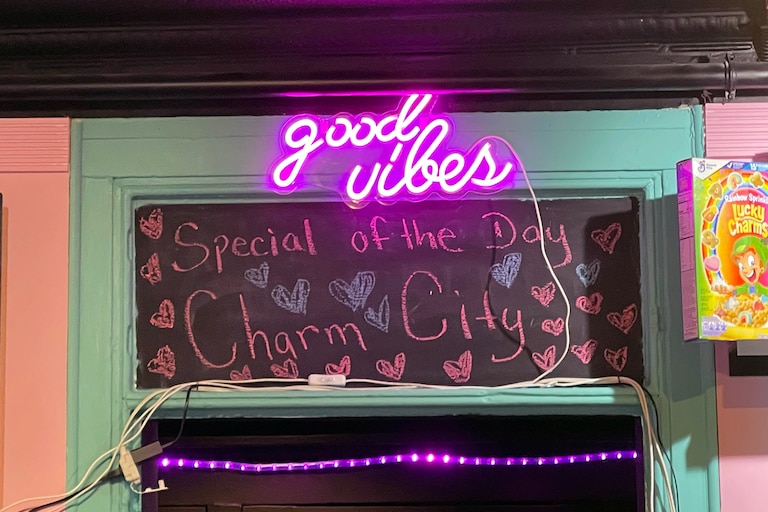 good
vibes
Special of the Day
Charm City
Rainbow Sprinkles
Lucky
Charms